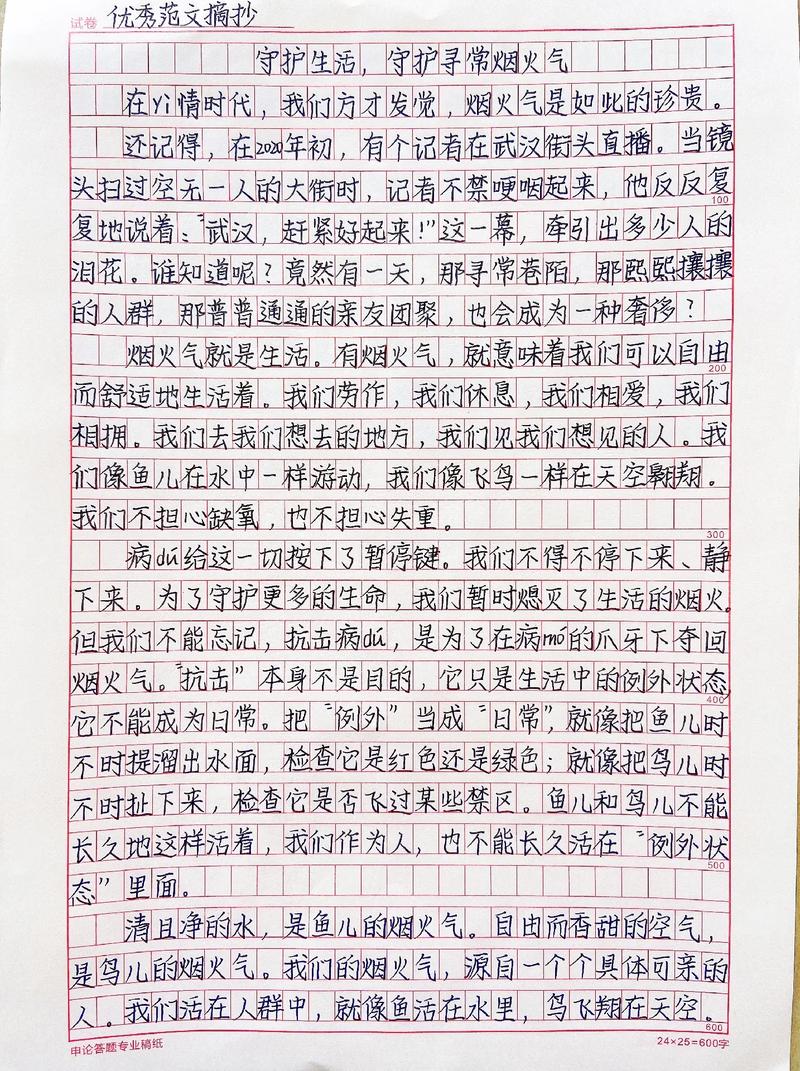 试卷 优秀范文摘抄
守护生活，守护寻常烟火气
在yi情时代，我们方才发觉，烟火气是如此的珍贵。
还记得，在2020年初，有个记者在武汉街头直播。当镜
头扫过空无一人的大街时，记者不禁哽咽起来，他反反复
100
复地说着：“武汉，赶紧好起来！”这一幕，牵引出多少人的
泪花。谁知道呢？竟然有一天，那寻常巷陌，那熙熙攘攘
的人群，那普普通通的亲友团聚，也会成为一种奢侈？
烟火气就是生活。有烟火气，就意味着我们可以自由
200
而舒适地生活着。我们劳作，我们休息，我们相爱，我们
相拥。我们去我们想去的地方，我们见我们想见的人。我
们像鱼儿在水中一样游动，我们像飞鸟一样在天空翱翔。
我们不担心缺氧，也不担心失重。
300
病dú给这一切按下了暂停键。我们不得不停下来、静
下来。为了守护更多的生命，我们暂时熄灭了生活的烟火。
但我们不能忘记，抗击病dú，是为了在病mó的爪牙下夺回
烟火气。“抗击”本身不是目的，它只是生活中的例外状态，
400
它不能成为日常。把“例外”当成“日常”，就像把鱼儿时
不时提溜出水面，检查它是红色还是绿色；就像把鸟儿时
不时扯下来，检查它是否飞过某些禁区。鱼儿和鸟儿不能
长久地这样活着，我们作为人，也不能长久活在“例外状
500
态”里面。
清且净的水，是鱼儿的烟火气。自由而香甜的空气，
是鸟儿的烟火气。我们的烟火气，源自一个个具体可亲的
人。我们活在人群中，就像鱼活在水里，鸟飞翔在天空。
600
申论答题专业稿纸 24×25=600字